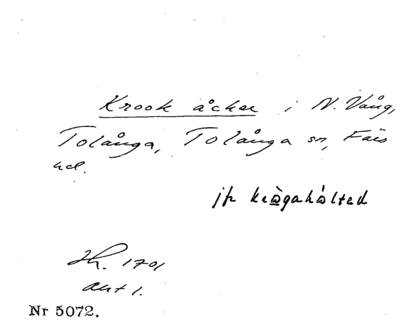 Krook åcker i N. Vång,
Tolånga, Tolånga sn, Färs
hd.
jfr krågahålted
Jh. 1701
akt 1.
Nr 5072.